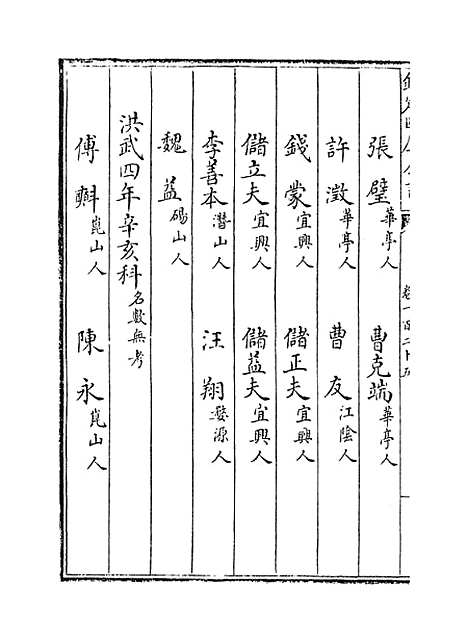 欽定四庫全書
卷一百二十五
張璧華亭人 曹克端華亭人
許澂華亭人 曹友江陰人
錢蒙宜興人 儲正夫宜興人
儲立夫宜興人 儲益夫宜興人
李善本潛山人 汪翔婺源人
魏益碭山人
洪武四年辛亥科名數無考
傅㪷崑山人 陳永崑山人